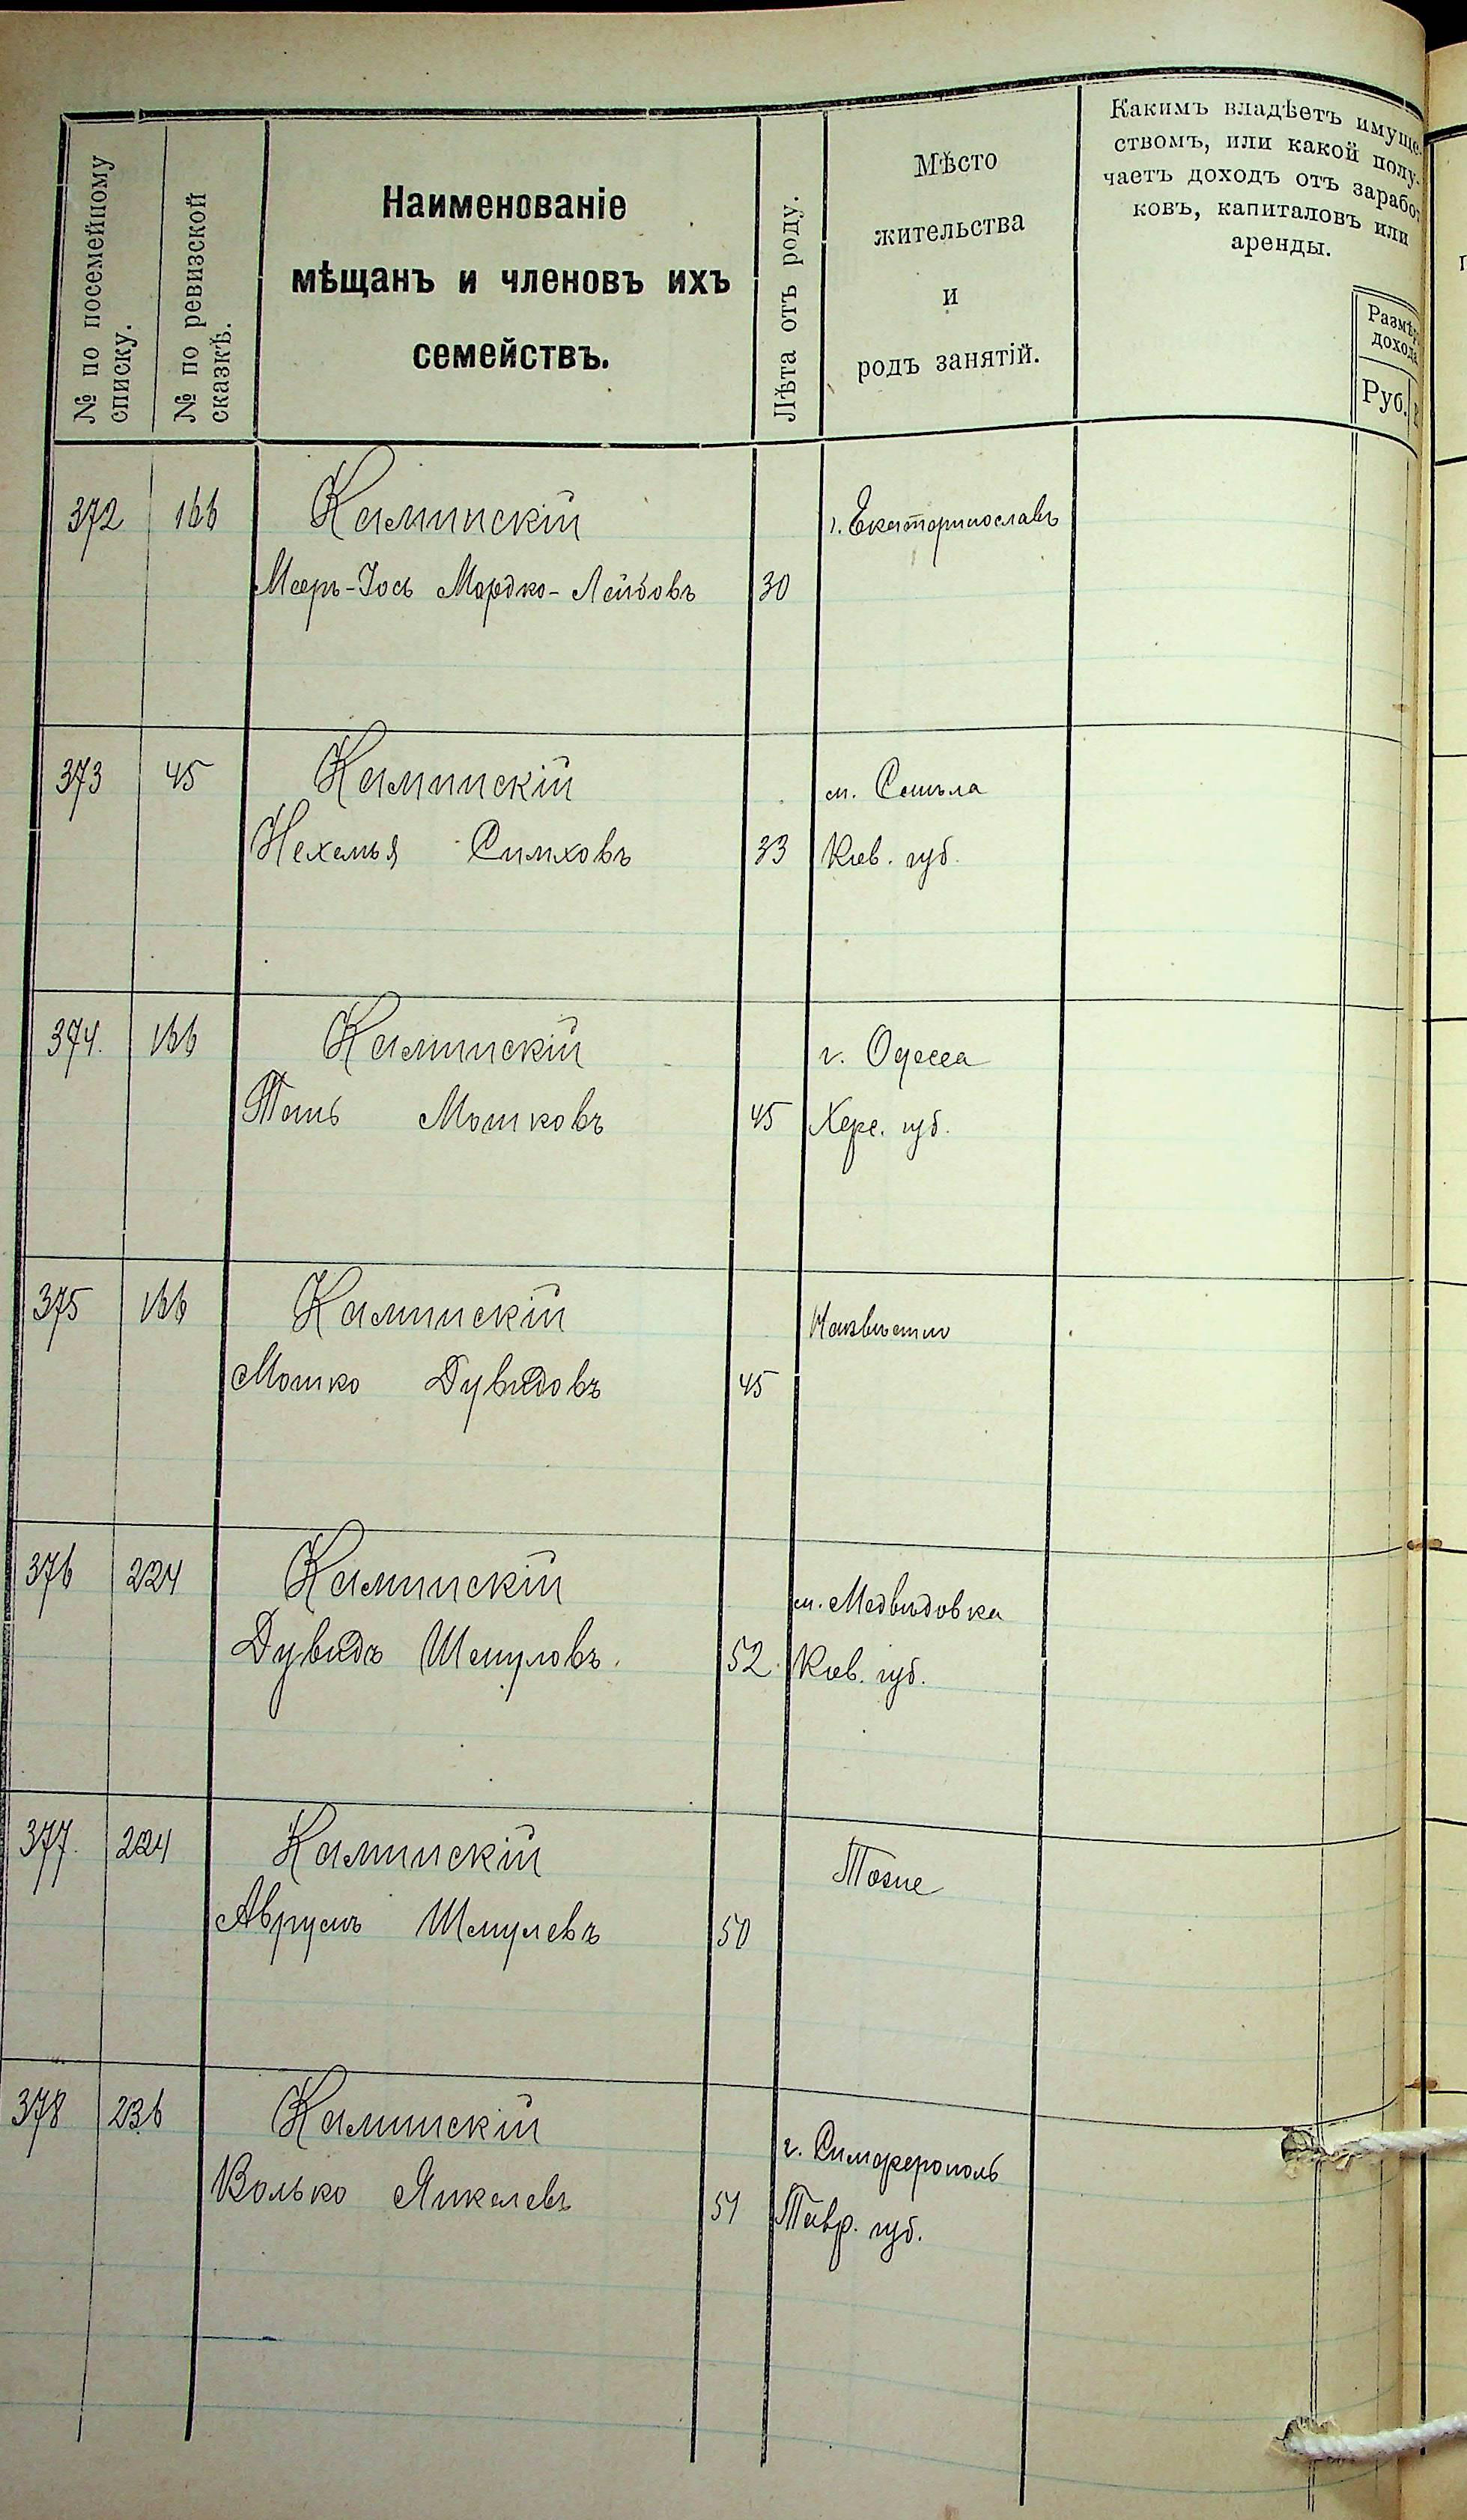 № по посемейному
списку.
№ по ревизской
сказкѣ.
Наименованіе
мѣщанъ и членовъ ихъ
семействъ.
Лѣта отъ роду.
Мѣсто
жительства
и
родъ занятій.
Какимъ владѣетъ имуще-
ствомъ, или какой полу-
чаетъ доходъ отъ заработ
ковъ, капиталовъ или
аренды.
Размѣръ
дохода
Руб.
372 166 Каминскій г. Екатеринославъ
Мееръ-Іось Мордко-Лейбовъ 30
373 45 Каминскій м. Смѣла
Нехемья Симховъ 33 Кіев. губ.
374. 166 Каминскій г. Одесса
Мошковъ 45 Херс. губ.
375 166 Каминскій Неизвѣстно
Мошко Дувидовъ 45
376 224 Каминскій м. Медвѣдовка
Дувидъ Шмуловъ. 52. Кіев. губ.
377. 224 Каминскій Тоже
Аврумъ Шмулевъ 50
378 236 Каминскій г. Симферополь
Волько Янкелевъ 51 Тавр. губ.